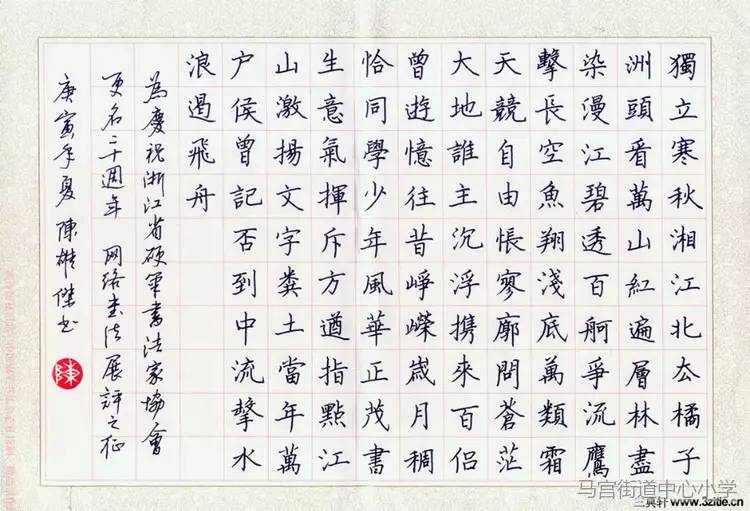 獨立寒秋湘江北厺橘子
洲頭看萬山紅遍層林盡
染漫江碧透百舸爭流鷹
擊長空魚翔淺底萬類霜
天競自由悵寥廓問蒼茫
大地誰主沉浮携來百侶
曾遊憶往昔崢嶸歲月稠
恰同學少年風華正茂書
生意氣揮斥方遒指點江
山激揚文字糞土當年萬
户侯曾記否到中流擊水
浪遏飛舟
為慶祝浙江省硬筆書法家協會
更名二十週年 网络书法展評之征
庚寅年夏陳雄傑书
陳
马宫街道中心小学
三真轩 www.3zitie.cn